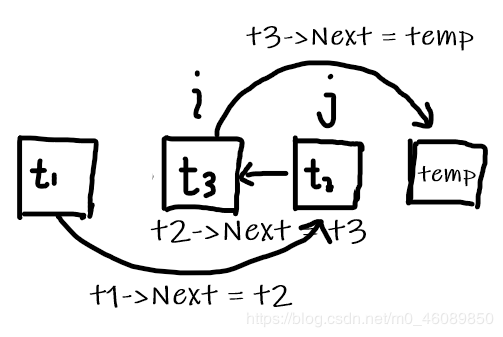 t3->Next = temp
i
j
t1
t3
t2
temp
t2->Next = t3
t1->Next = t2
https://blog.csdn.net/m0_46089850